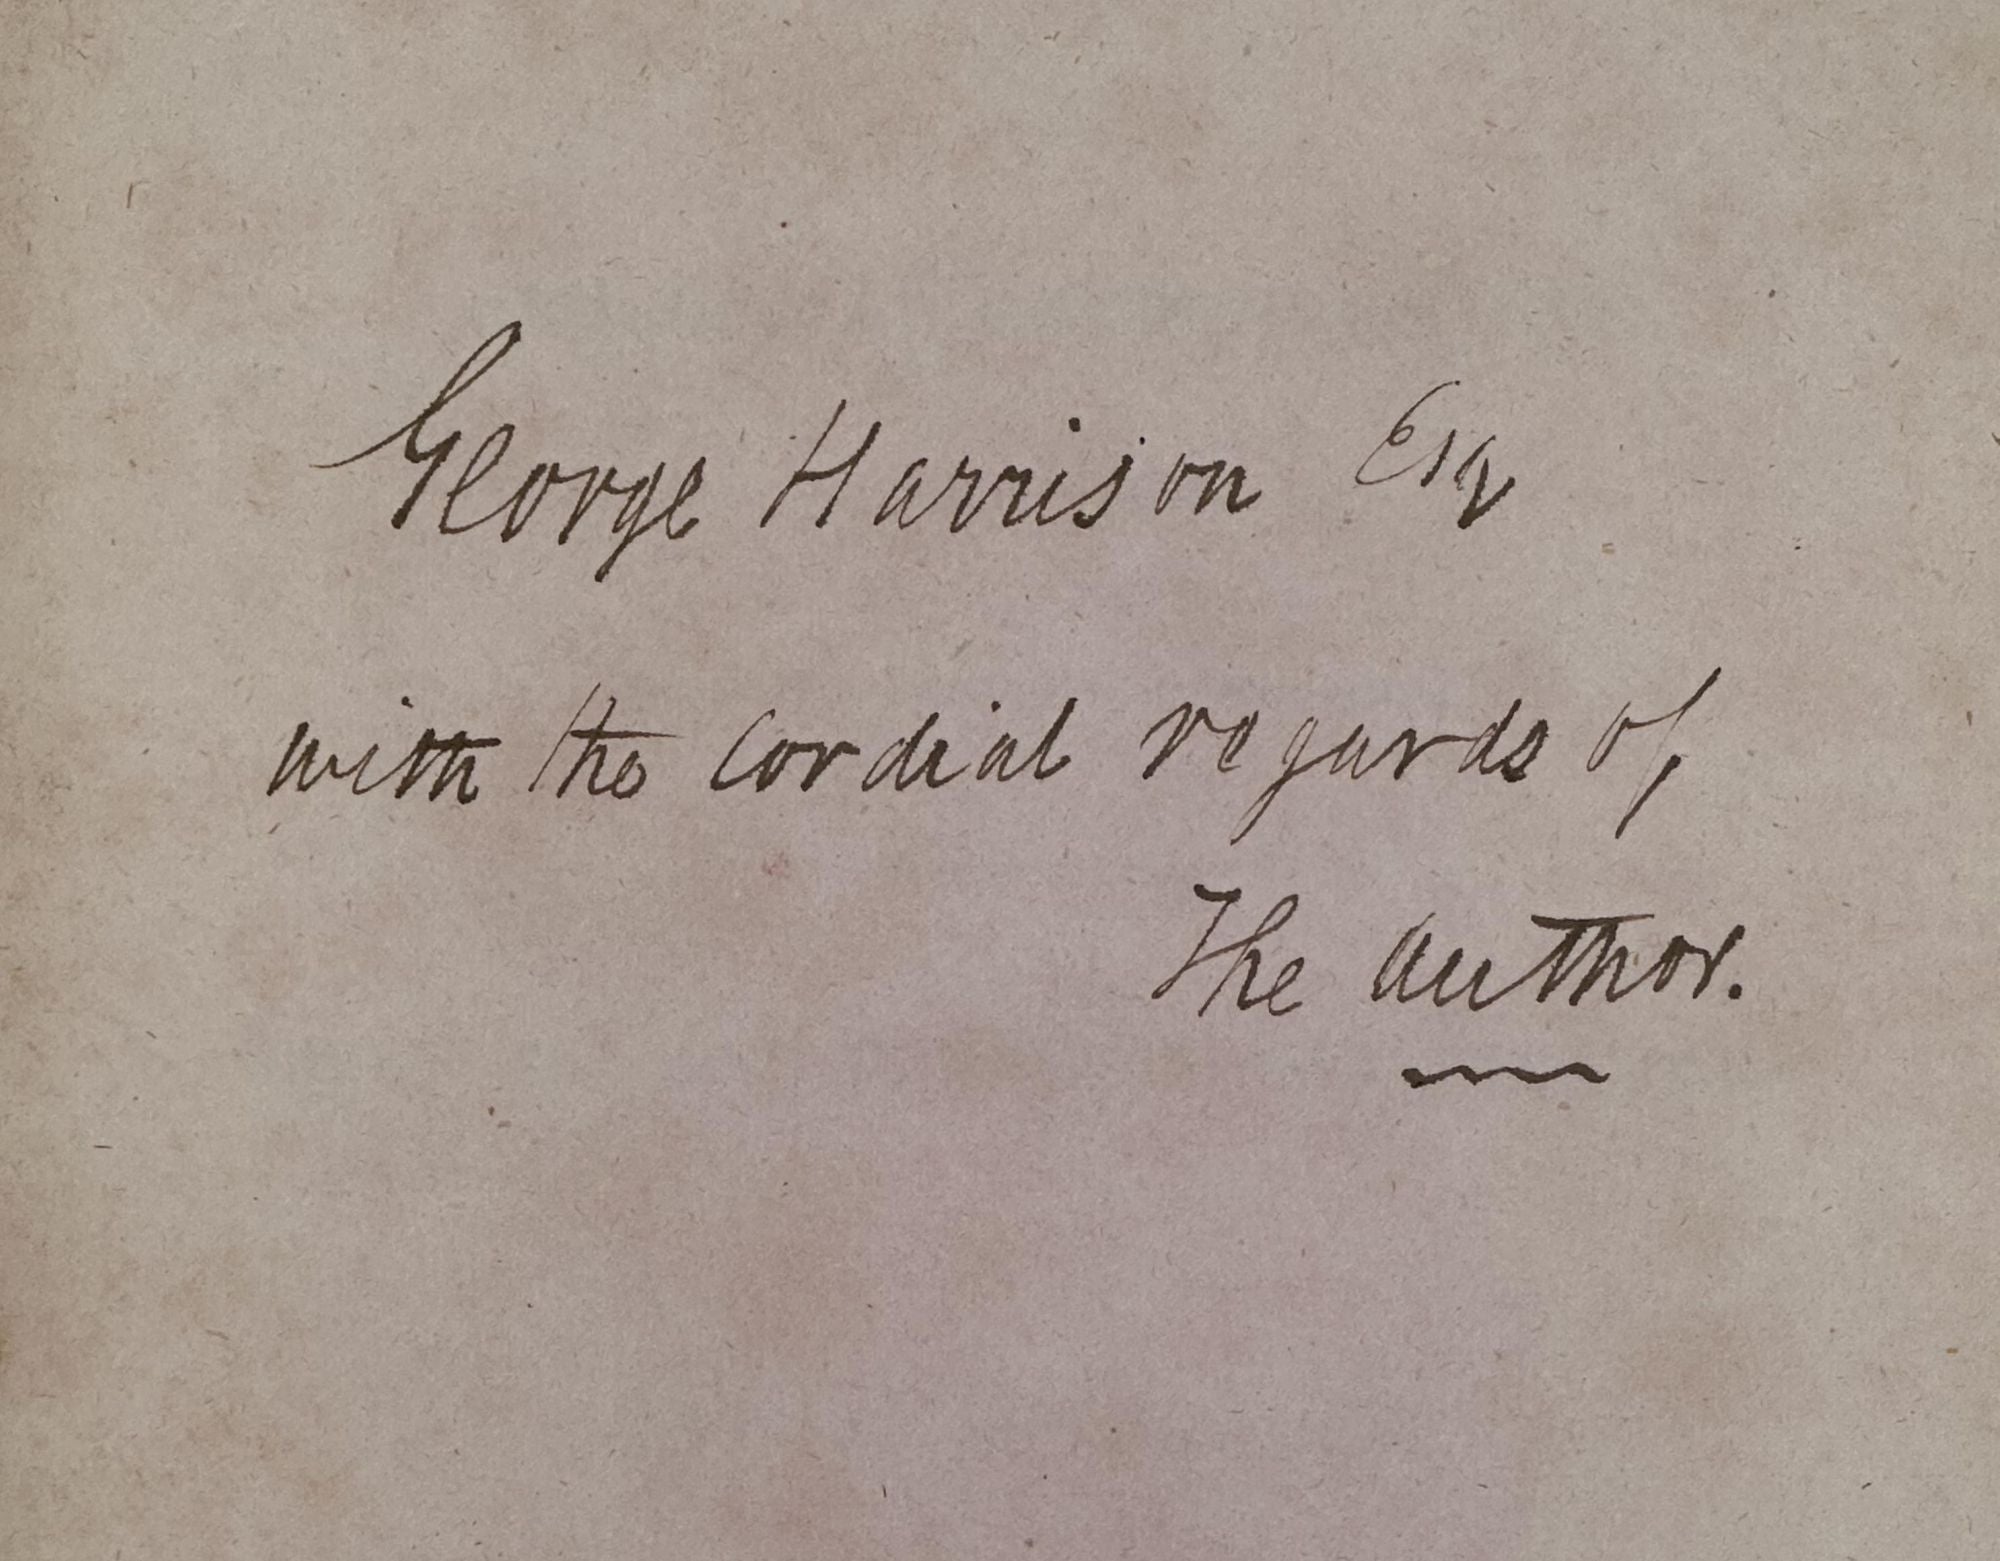 George Harrison Esq
with the cordial regards of
The author.